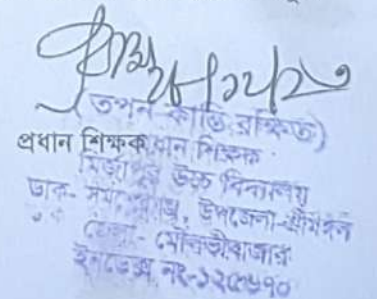 (তপন কান্তি রক্ষিত)
প্রধান শিক্ষক
প্রধান শিক্ষক
মির্জাপুর উচ্চ বিদ্যালয়
ডাক- , উপজেলা-শ্রীমঙ্গল
জেলা- মৌলভীবাজার
ইনডেক্স নং-১২৫৬৭০